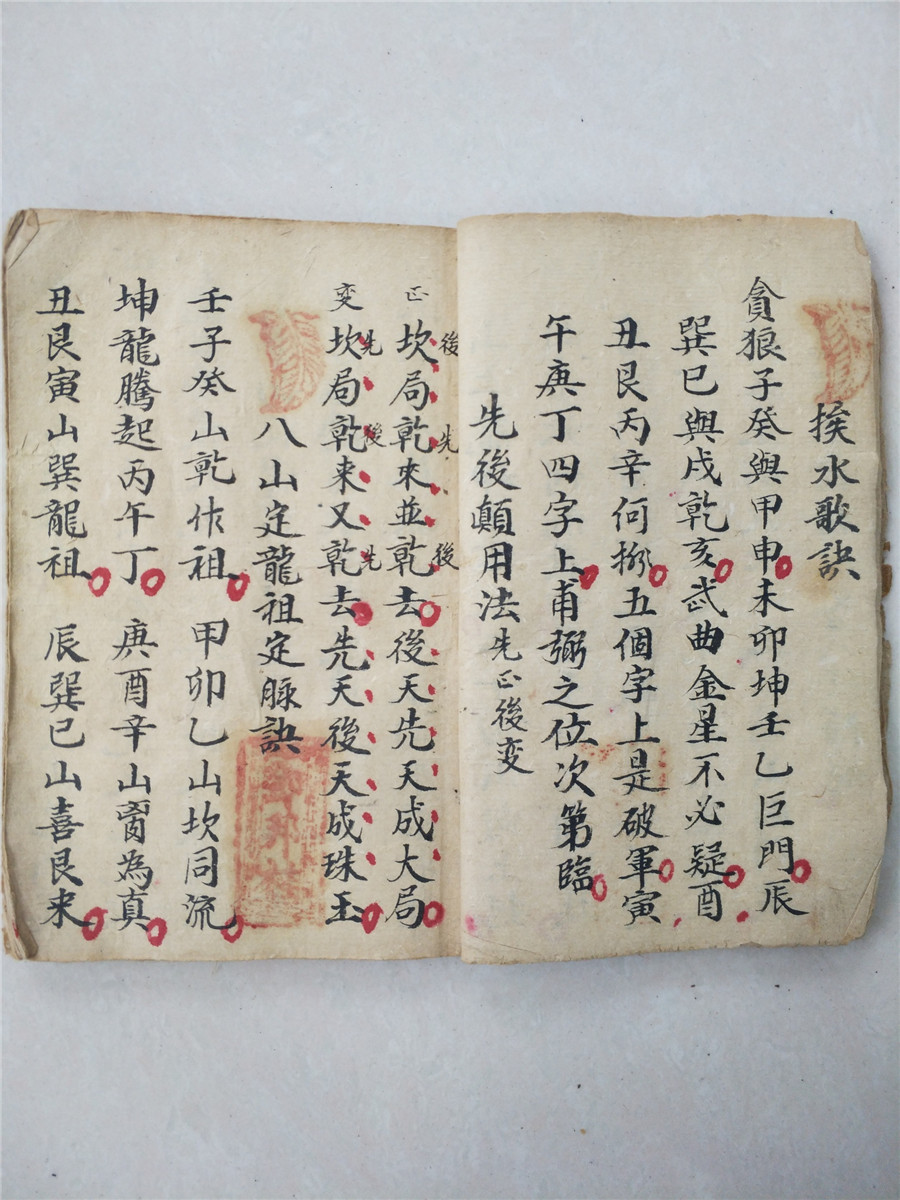 挨水歌訣
貪狼子癸與甲申未卯坤壬乙巨門辰
巽巳與戌乾亥武曲金星不必疑酉
丑艮丙辛何拟五個字上是破軍寅
午庚丁四字上甫弼之位次第臨
先後顛用法先正後変
正坎局乾來並乾去後天先天成大局
後先後
変坎局乾来又乾去先天後天成珠玉
先後先
八山定龍祖定脉訣
壬子癸山乾作祖甲卯乙山坎同流
坤龍騰起丙午丁庚酉辛山离為真
丑艮寅山巽龍祖辰巽巳山喜艮来